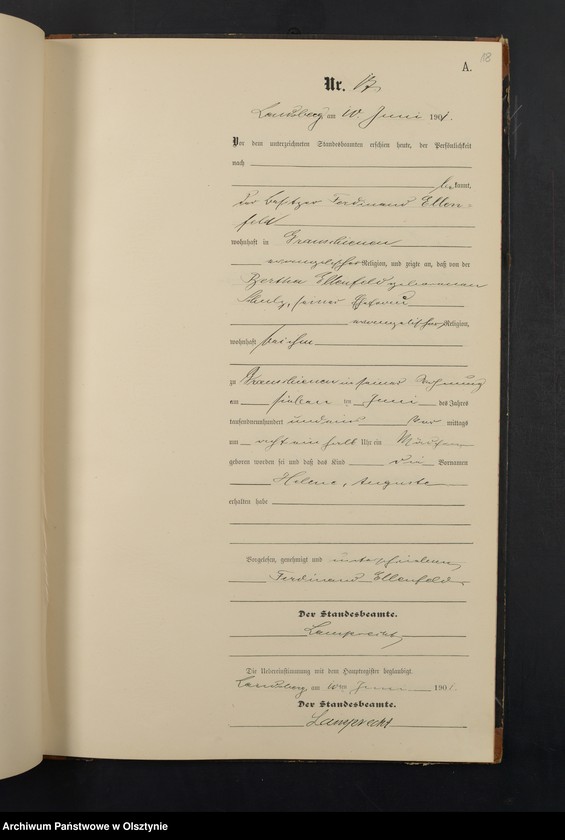 18
A.
Nr.
Landsberg am 10. Juni 1901.
Vor dem unterzeichneten Standesbeamten erschien heute, der Persönlichkeit
nach
bekannt,
der Besitzer Ferdinand Ellen-
feld
wohnhaft in
evangelischer Religion, und zeigte an, daß von der
Bertha Ellenfeld geborenen
seiner Ehefrau
evangelischer Religion,
wohnhaft bei ihm
zu in seiner Wohnung
am sieben ten Juni des Jahres
tausendneunhundert und eins Vor mittags
um acht ein halb Uhr ein Mädchen
geboren worden sei und daß das Kind die Vornamen
Helene, Auguste
erhalten habe
Vorgelesen, genehmigt und unterschrieben
Ferdinand Ellenfeld.
Der Standesbeamte.
Lamprecht
Die Uebereinstimmung mit dem Hauptregister beglaubigt.
Landsberg, am 10ten Juni 1901.
Der Standesbeamte.
Lamprecht
Archiwum Państwowe w Olsztynie